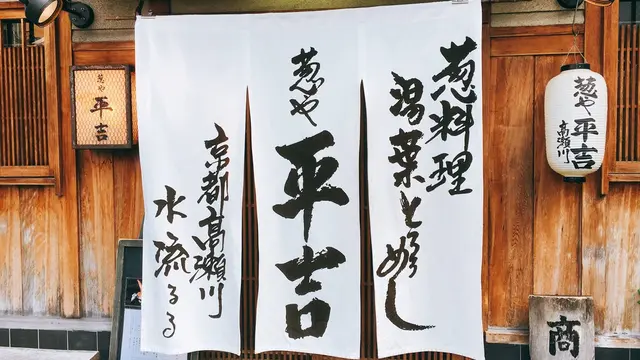 葱料理
湯葉とめし
葱や
平吉
京都高瀬川
水流るる
葱や
平吉
葱や
平吉
高瀬川
商